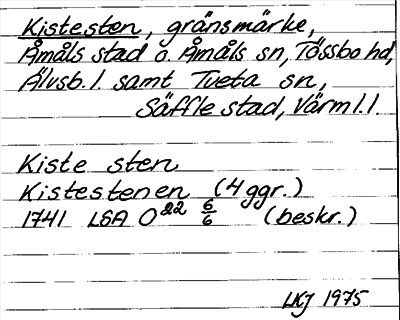 Kistesten, gränsmärke,
Åmåls stad o. Åmåls sn, Tössbo hd,
Älvsb. l. samt Tveta sn,
Säffle stad, Värml. l.
Kiste sten
Kistestenen (4 ggr.)
1741 LSA O²² 6/6 (beskr.)
LKJ 1975